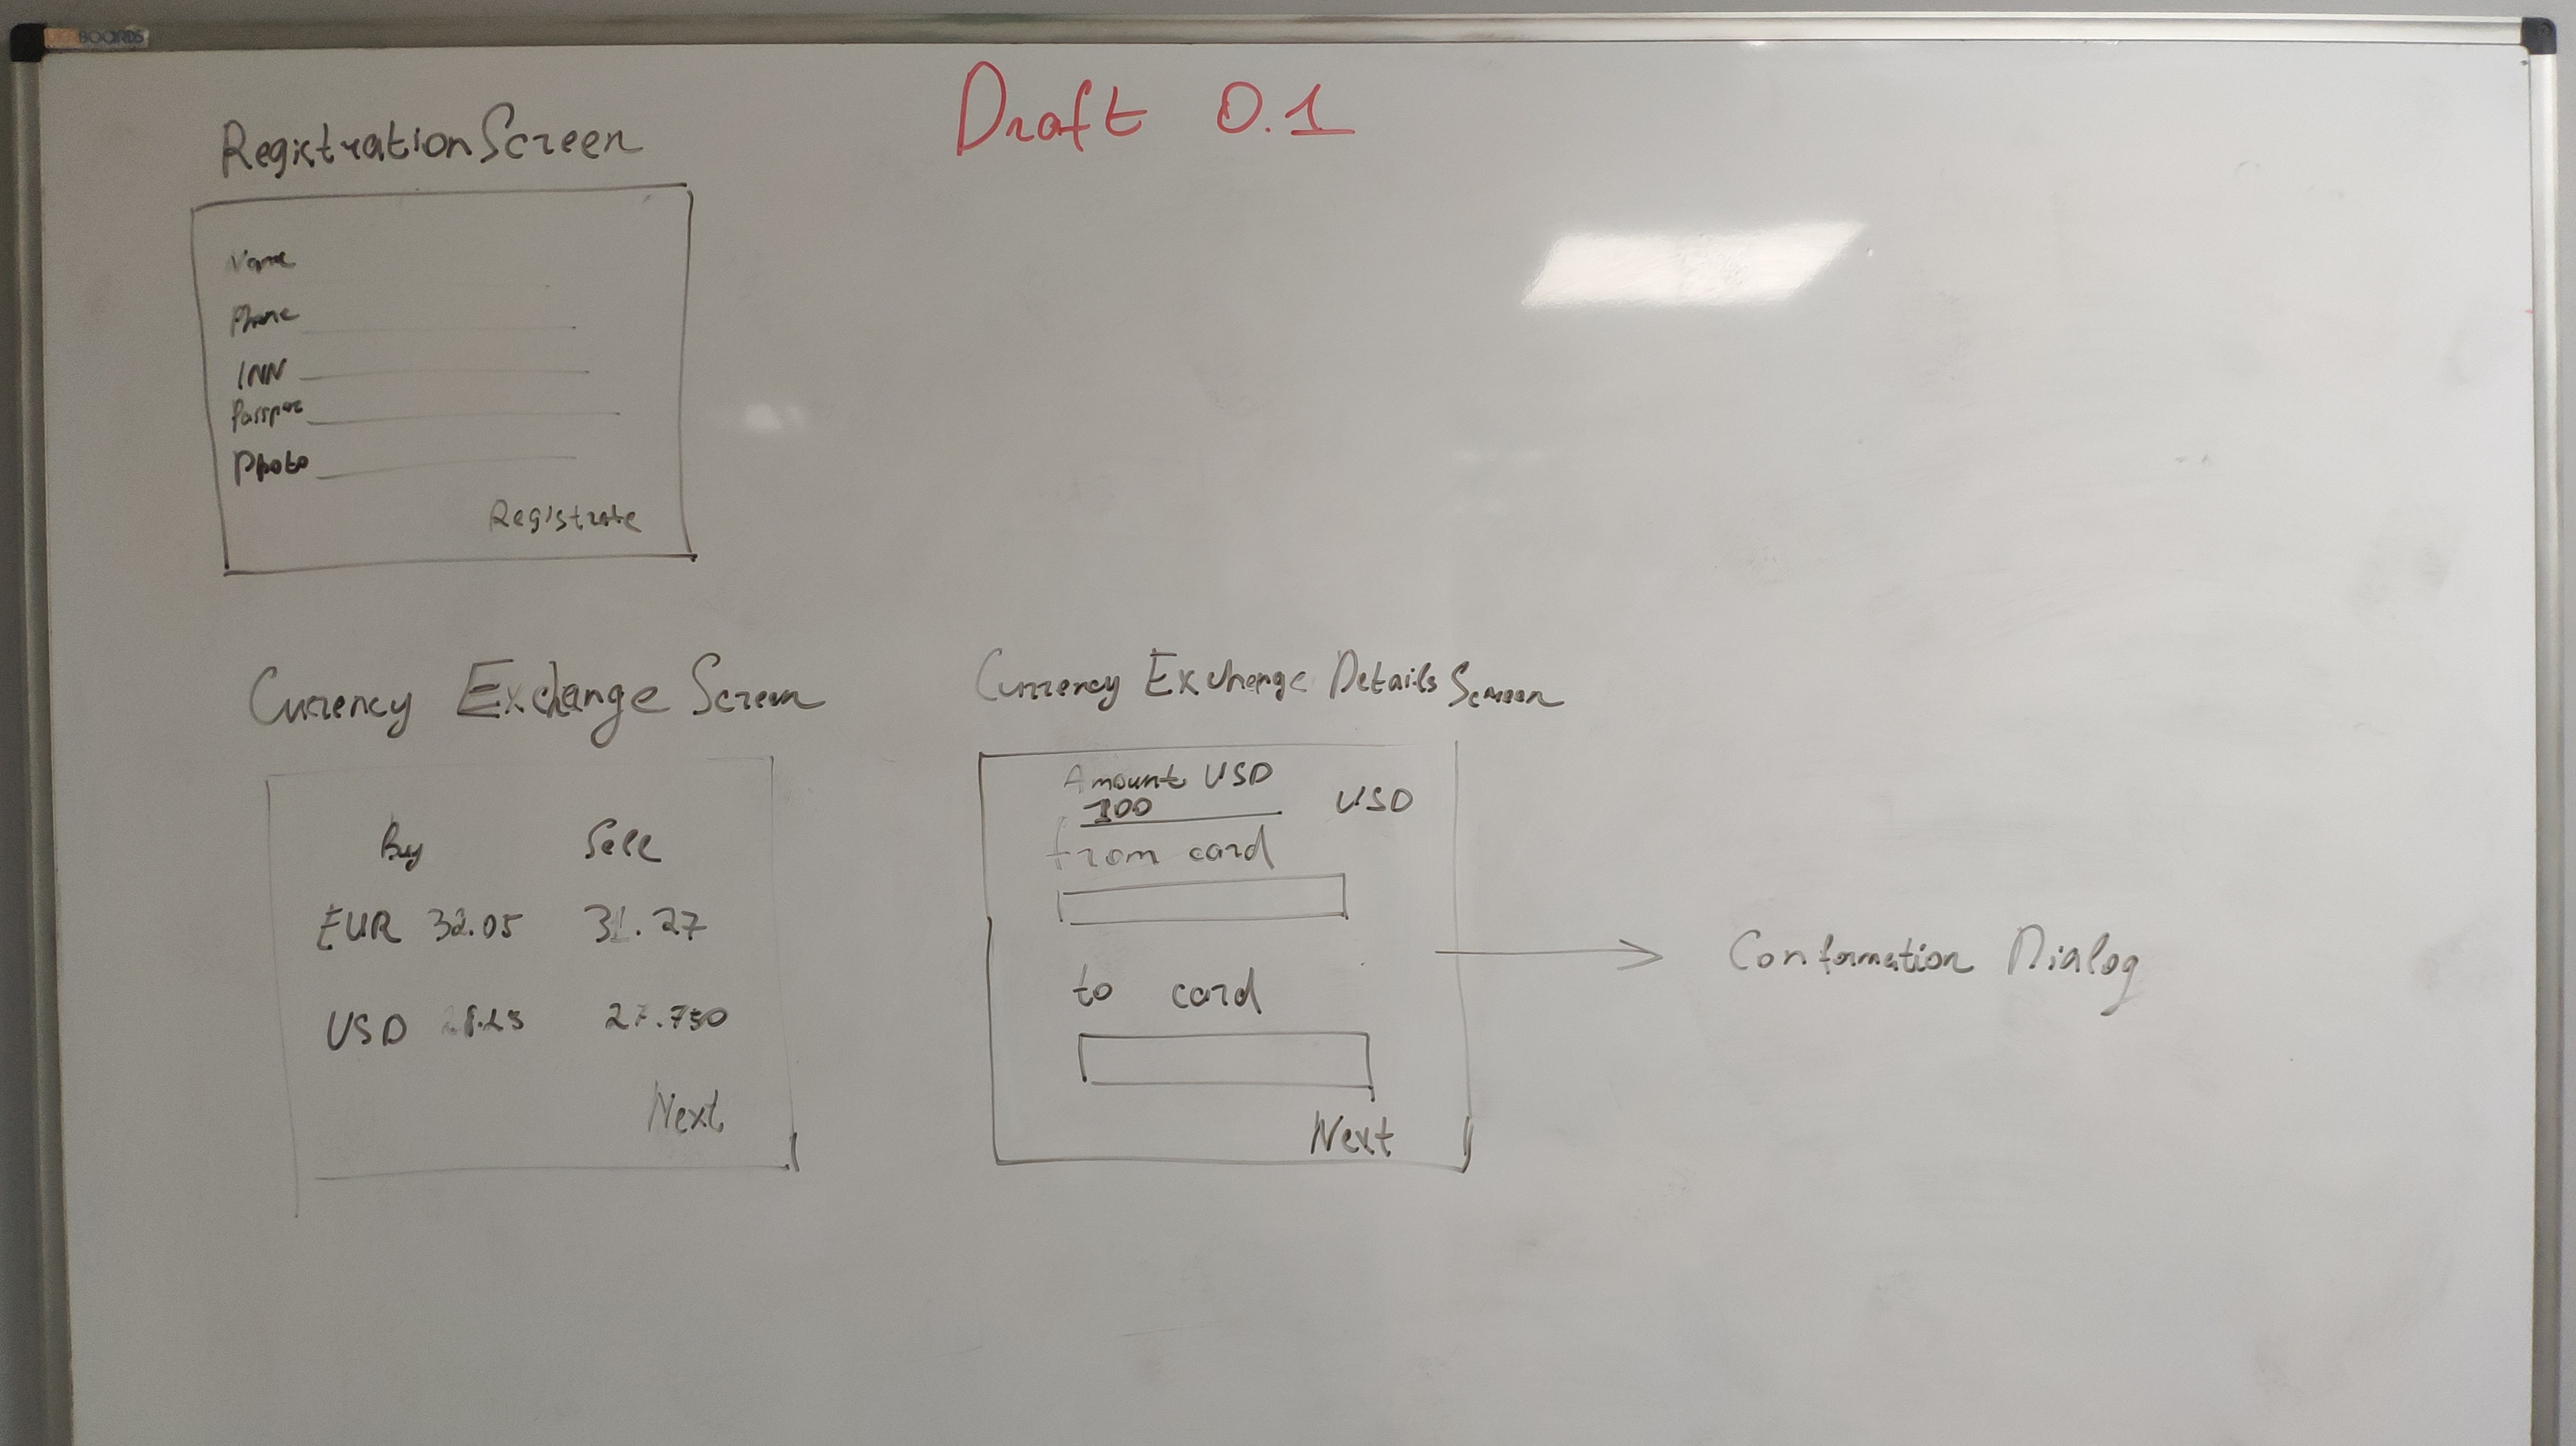 BOARDS
Draft 0.1
Registration Screen
Name
Phone
INN
Photo
Registrate
Currency Exchange Screen
Buy Sell
EUR 32.05 31.27
USD 27.750
Next
Currency Exchange Details Screen
Amount USD
100 USD
from card
to card
Next
Conformation Dialog